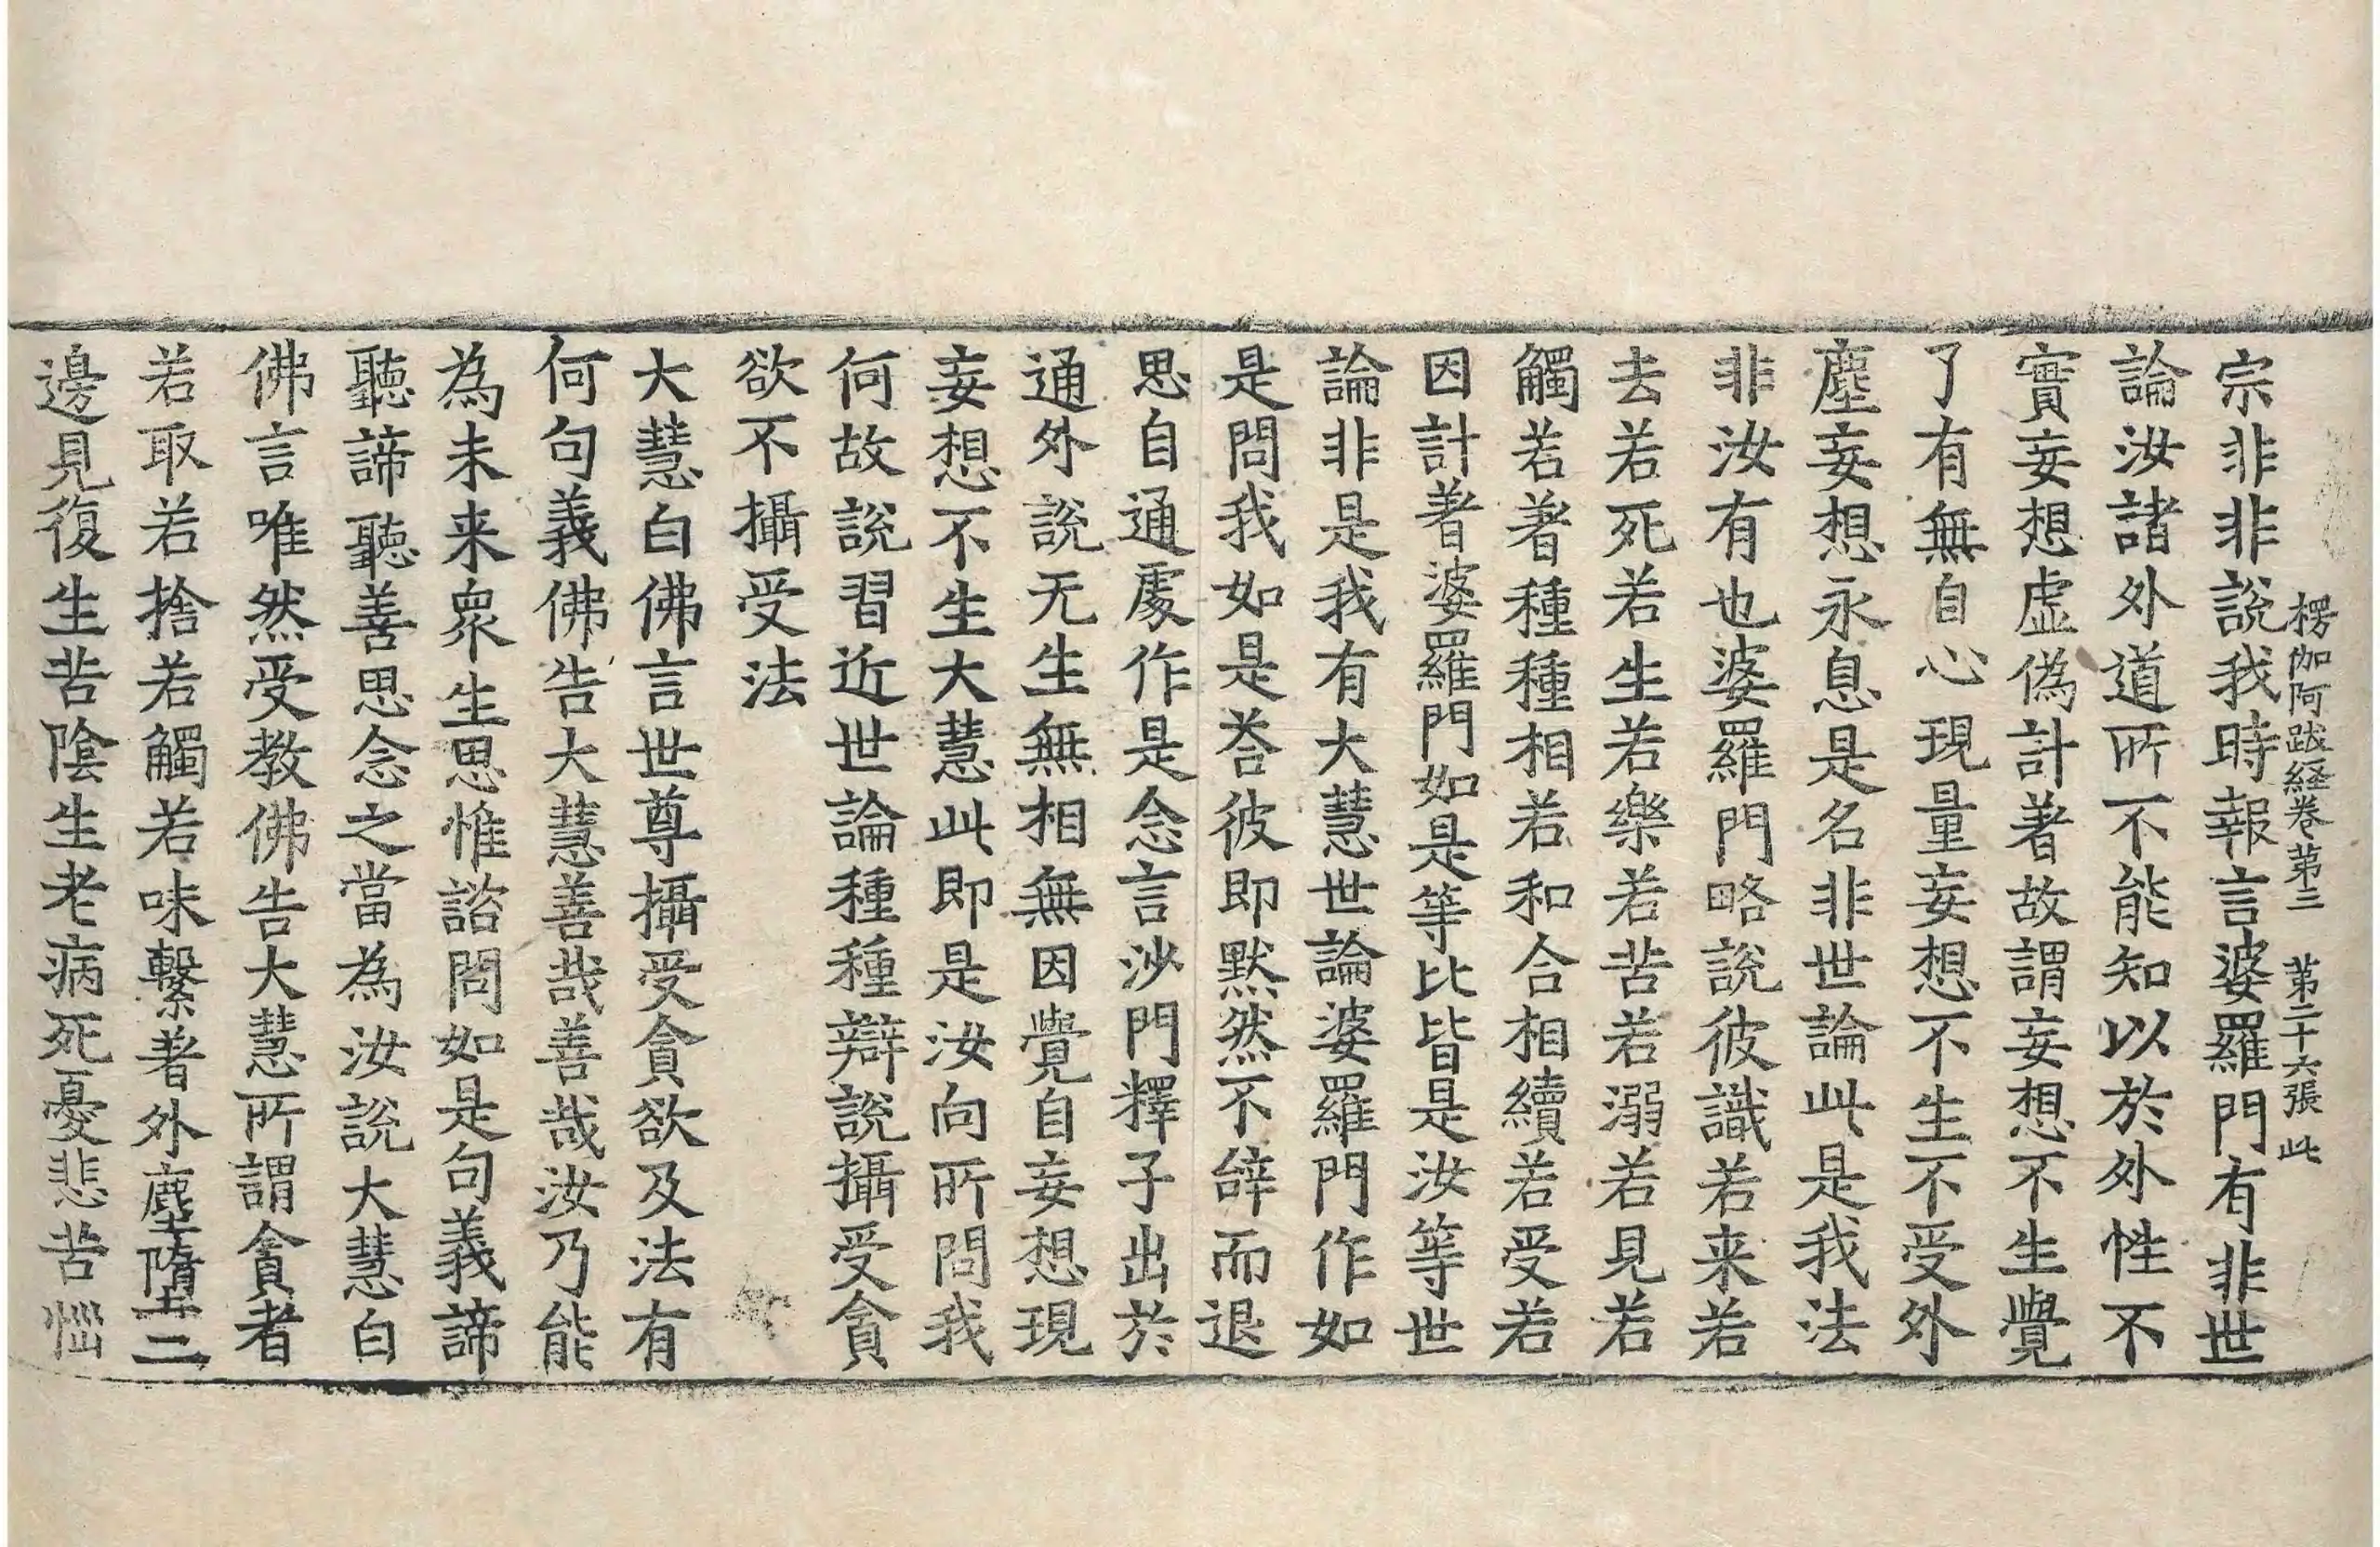 楞伽阿跋経卷苐三 苐二十六張 此
宗非非說我時報言婆羅門有非世
論汝諸外道所不能知以於外性不
實妄想虛偽計著故謂妄想不生覺
了有無自心現量妄想不生不受外
塵妄想永息是名非世論此是我法
非汝有也婆羅門略說彼識若来若
去若死若生若樂若苦若溺若見若
觸若著種種相若和合相續若受若
因計著婆羅門如是等比皆是汝等世
論非是我有大慧世論婆羅門作如
是問我如是荅彼即默然不辝而退
思自通處作是念言沙門釋子出於
通外說无生無相無因覺自妄想現
妄想不生大慧此即是汝向所問我
何故說習近世論種種辯說攝受貪
欲不攝受法
大慧白佛言世尊攝受貪欲及法有
何句義佛告大慧善哉善哉汝乃能
為未来眾生思惟諮問如是句義諦
聽諦聽善思念之當為汝說大慧白
佛言唯然受教佛告大慧所謂貪者
若取若捨若觸若味繫著外塵墮二
邊見復生苦陰生老病死憂悲苦惱